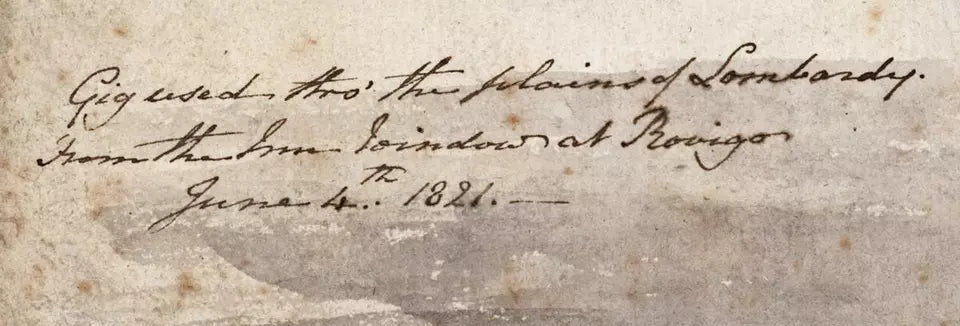 Gig used thro' the plains of Lombardy.
From the Inn Window at Rovigo
June 4.th 1821. —